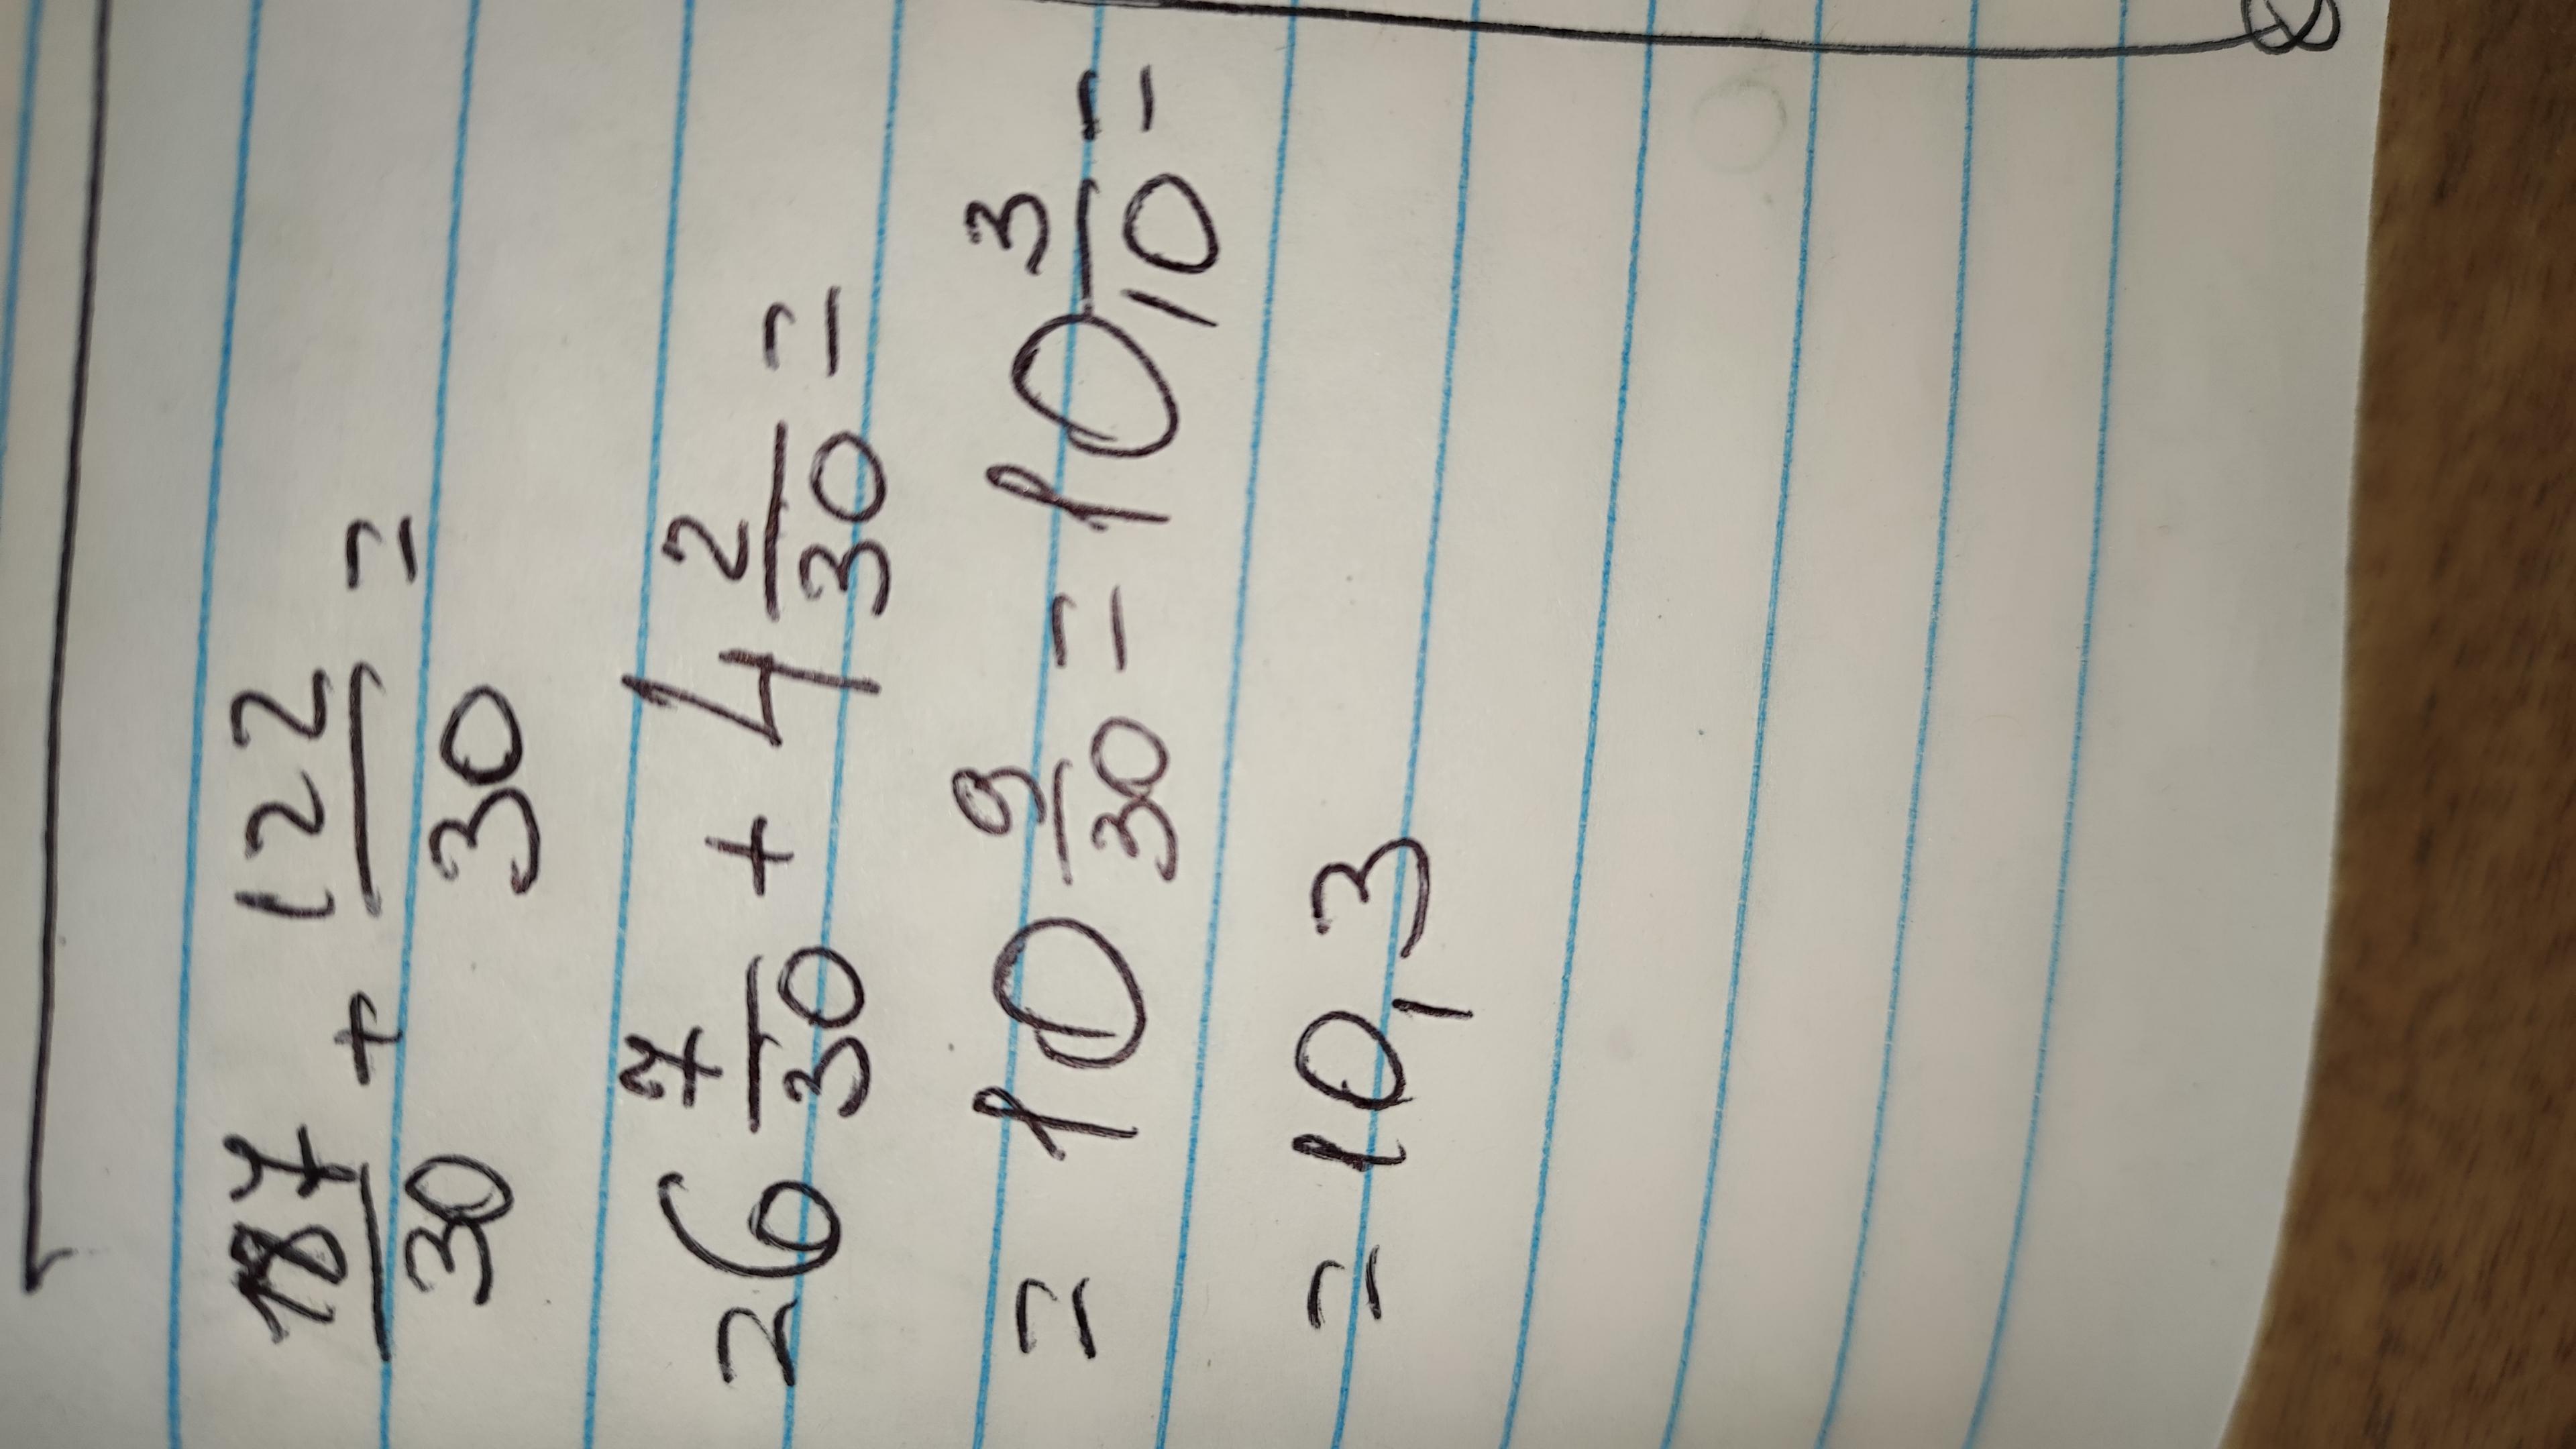 187/30 + 122/30 =
= 6 7/30 + 4 2/30 =
= 10 9/30 = 10 3/10 =
= 10,3